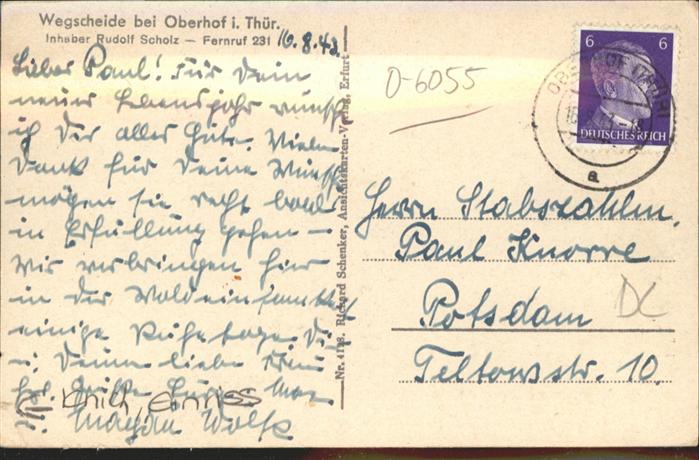 Wegscheide bei Oberhof i. Thür.
Inhaber Rudolf Scholz — Fernruf 231
16.8.43.
Lieber Paul! Für Dein
neues Lebensjahr wünsche
ich Dir alles Gute. Vielen
Dank für Deine Wünsche
mögen sie recht bald
in Erfüllung gehen –
Wir verbringen hier
in der Waldeinsamkeit
einige Ruhetage. Dir
u. Deiner lieben Frau
hrzl. Grüße
Wolff
Nr. 4118. Richard Schenker, Ansichtskarten-Verlag, Erfurt
D-6055
6 6
DEUTSCHES REICH
OBERHOF (THÜR)
a
Herrn Stabszahlm.
Paul Knorre
Potsdam
Teltowstr. 10.
DC